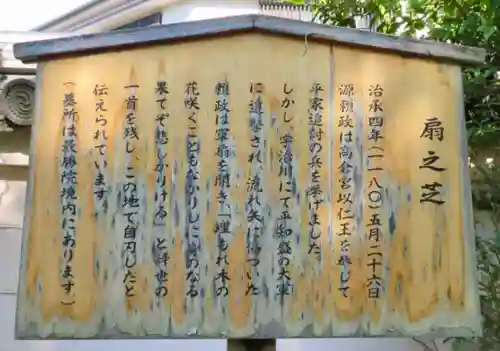 扇之芝
治承四年（一一八〇）五月二十六日
源頼政は高倉宮以仁王を奉じて
平家追討の兵を挙げました
しかし、宇治川にて平知盛の大軍
に追撃され、流れ矢に傷ついた
頼政は軍扇を開き「埋もれ木の
花咲くこともなかりしに身のなる
果てぞ悲しかりける」と辞世の
一首を残し、この地で自刃したと
伝えられています
（墓所は最勝院境内にあります）